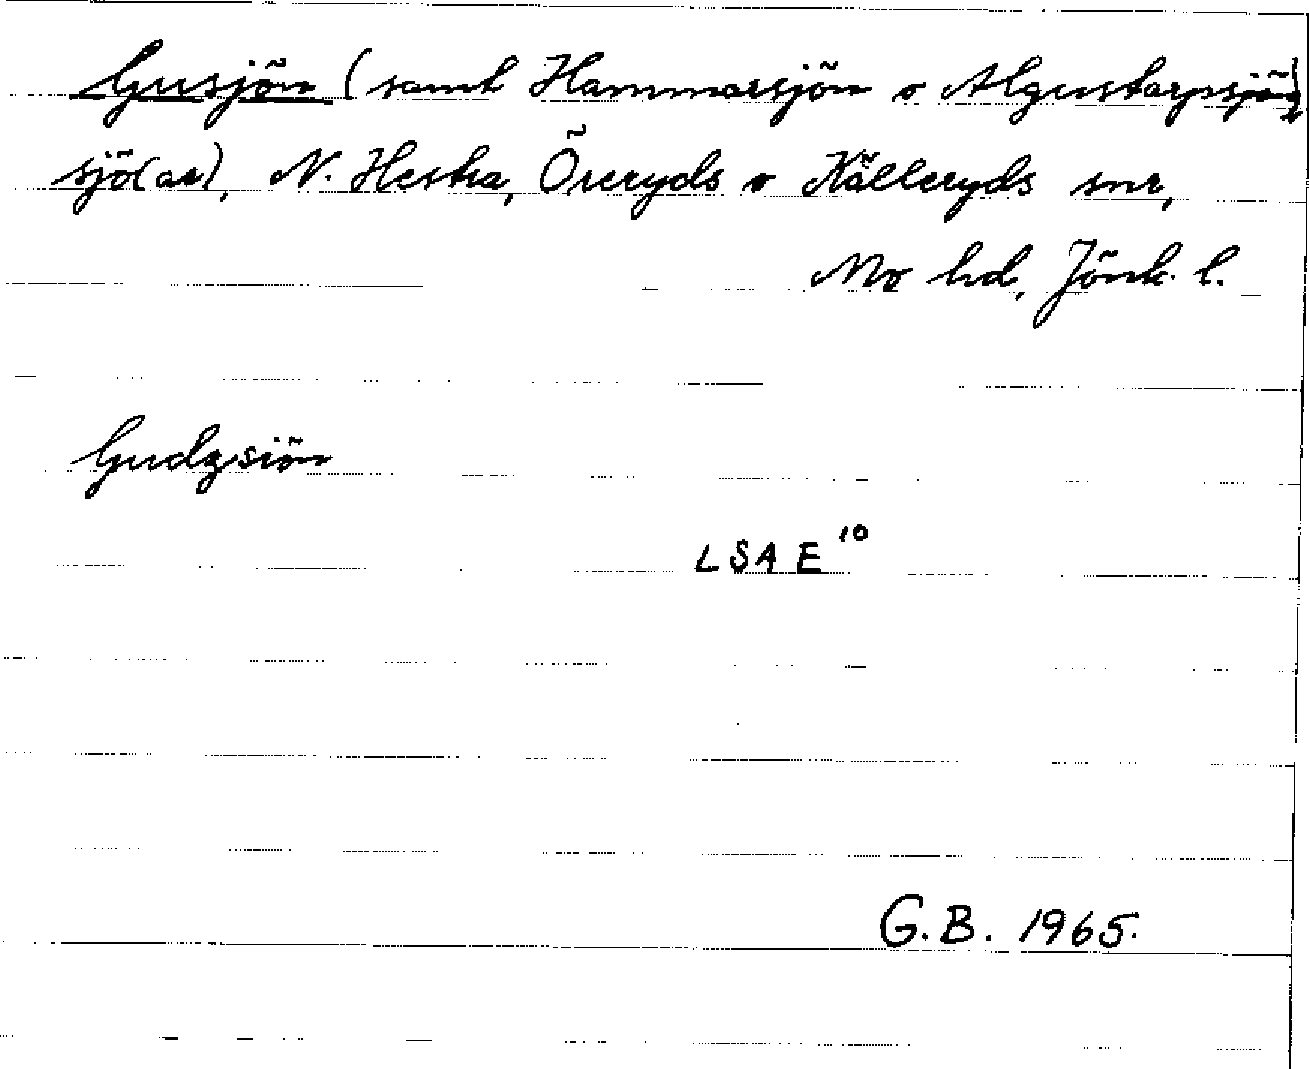 Gusjön (samt Hammarsjön o Algustorpssjön)
sjö(ar), N. Hestra, Öreryds o Källeryds snr,
Mo hd, Jönk. l.
Gudzsiön
LSA E 10
G.B. 1965.